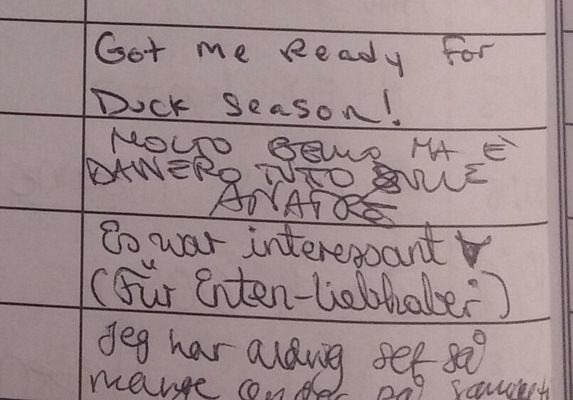 Got me Ready for
Duck Season!
MOLTO BELLO MA È
DAVVERO TUTTO SULLE
ANATRE
Es war interessant
(Für Enten-liebhaber)
Jeg har aldrig set så
mange ænder på samme